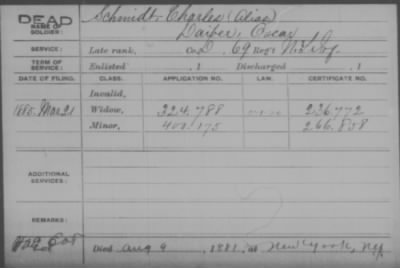 DEAD
NAME OF SOLDIER:
Schmidt, Charles (alias)
Oscar
SERVICE: Late rank, Co. D. 69 Reg't N.Y. Inf.
TERM OF SERVICE: Enlisted , 1 Discharged , 1
DATE OF FILING. CLASS. APPLICATION NO. LAW. CERTIFICATE NO.
Invalid,
1885. Mar 21 Widow, 324.788 236.772
Minor, 400.175 266.858
ADDITIONAL SERVICES:
REMARKS:
Died Aug 9 , 1881, at New York, N.Y.